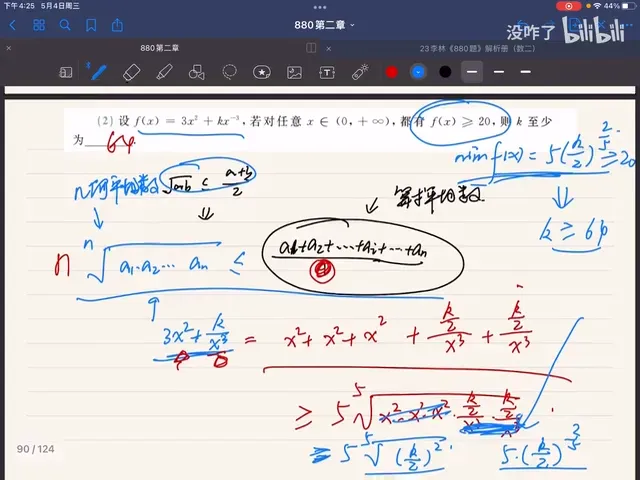 下午4:25 5月4日周三
44%
880第二章
没咋了 bilibili
880第二章
23李林《880题》解析册（数二）
(2) 设 f(x) = 3x² + kx⁻³, 若对任意 x ∈ (0, +∞), 都有 f(x) ≥ 20, 则 k 至少
为 64.
min f(x) = 5(k/2)^(2/5) ≥ 20
⇓
k ≥ 64
n 几何平均数 √(ab) ≤ (a+b)/2
⇓
算术平均数
n ⁿ√(a₁·a₂⋯aₙ) ≤ a₁+a₂+⋯+aᵢ+⋯+aₙ
3x² + k/x³ = x² + x² + x² + (k/2)/x³ + (k/2)/x³
≥ 5 ⁵√(x²·x²·x²·(k/2)/x³·(k/2)/x³)
≥ 5 ⁵√((k/2)²) 5·(k/2)^(2/5)
90 / 124